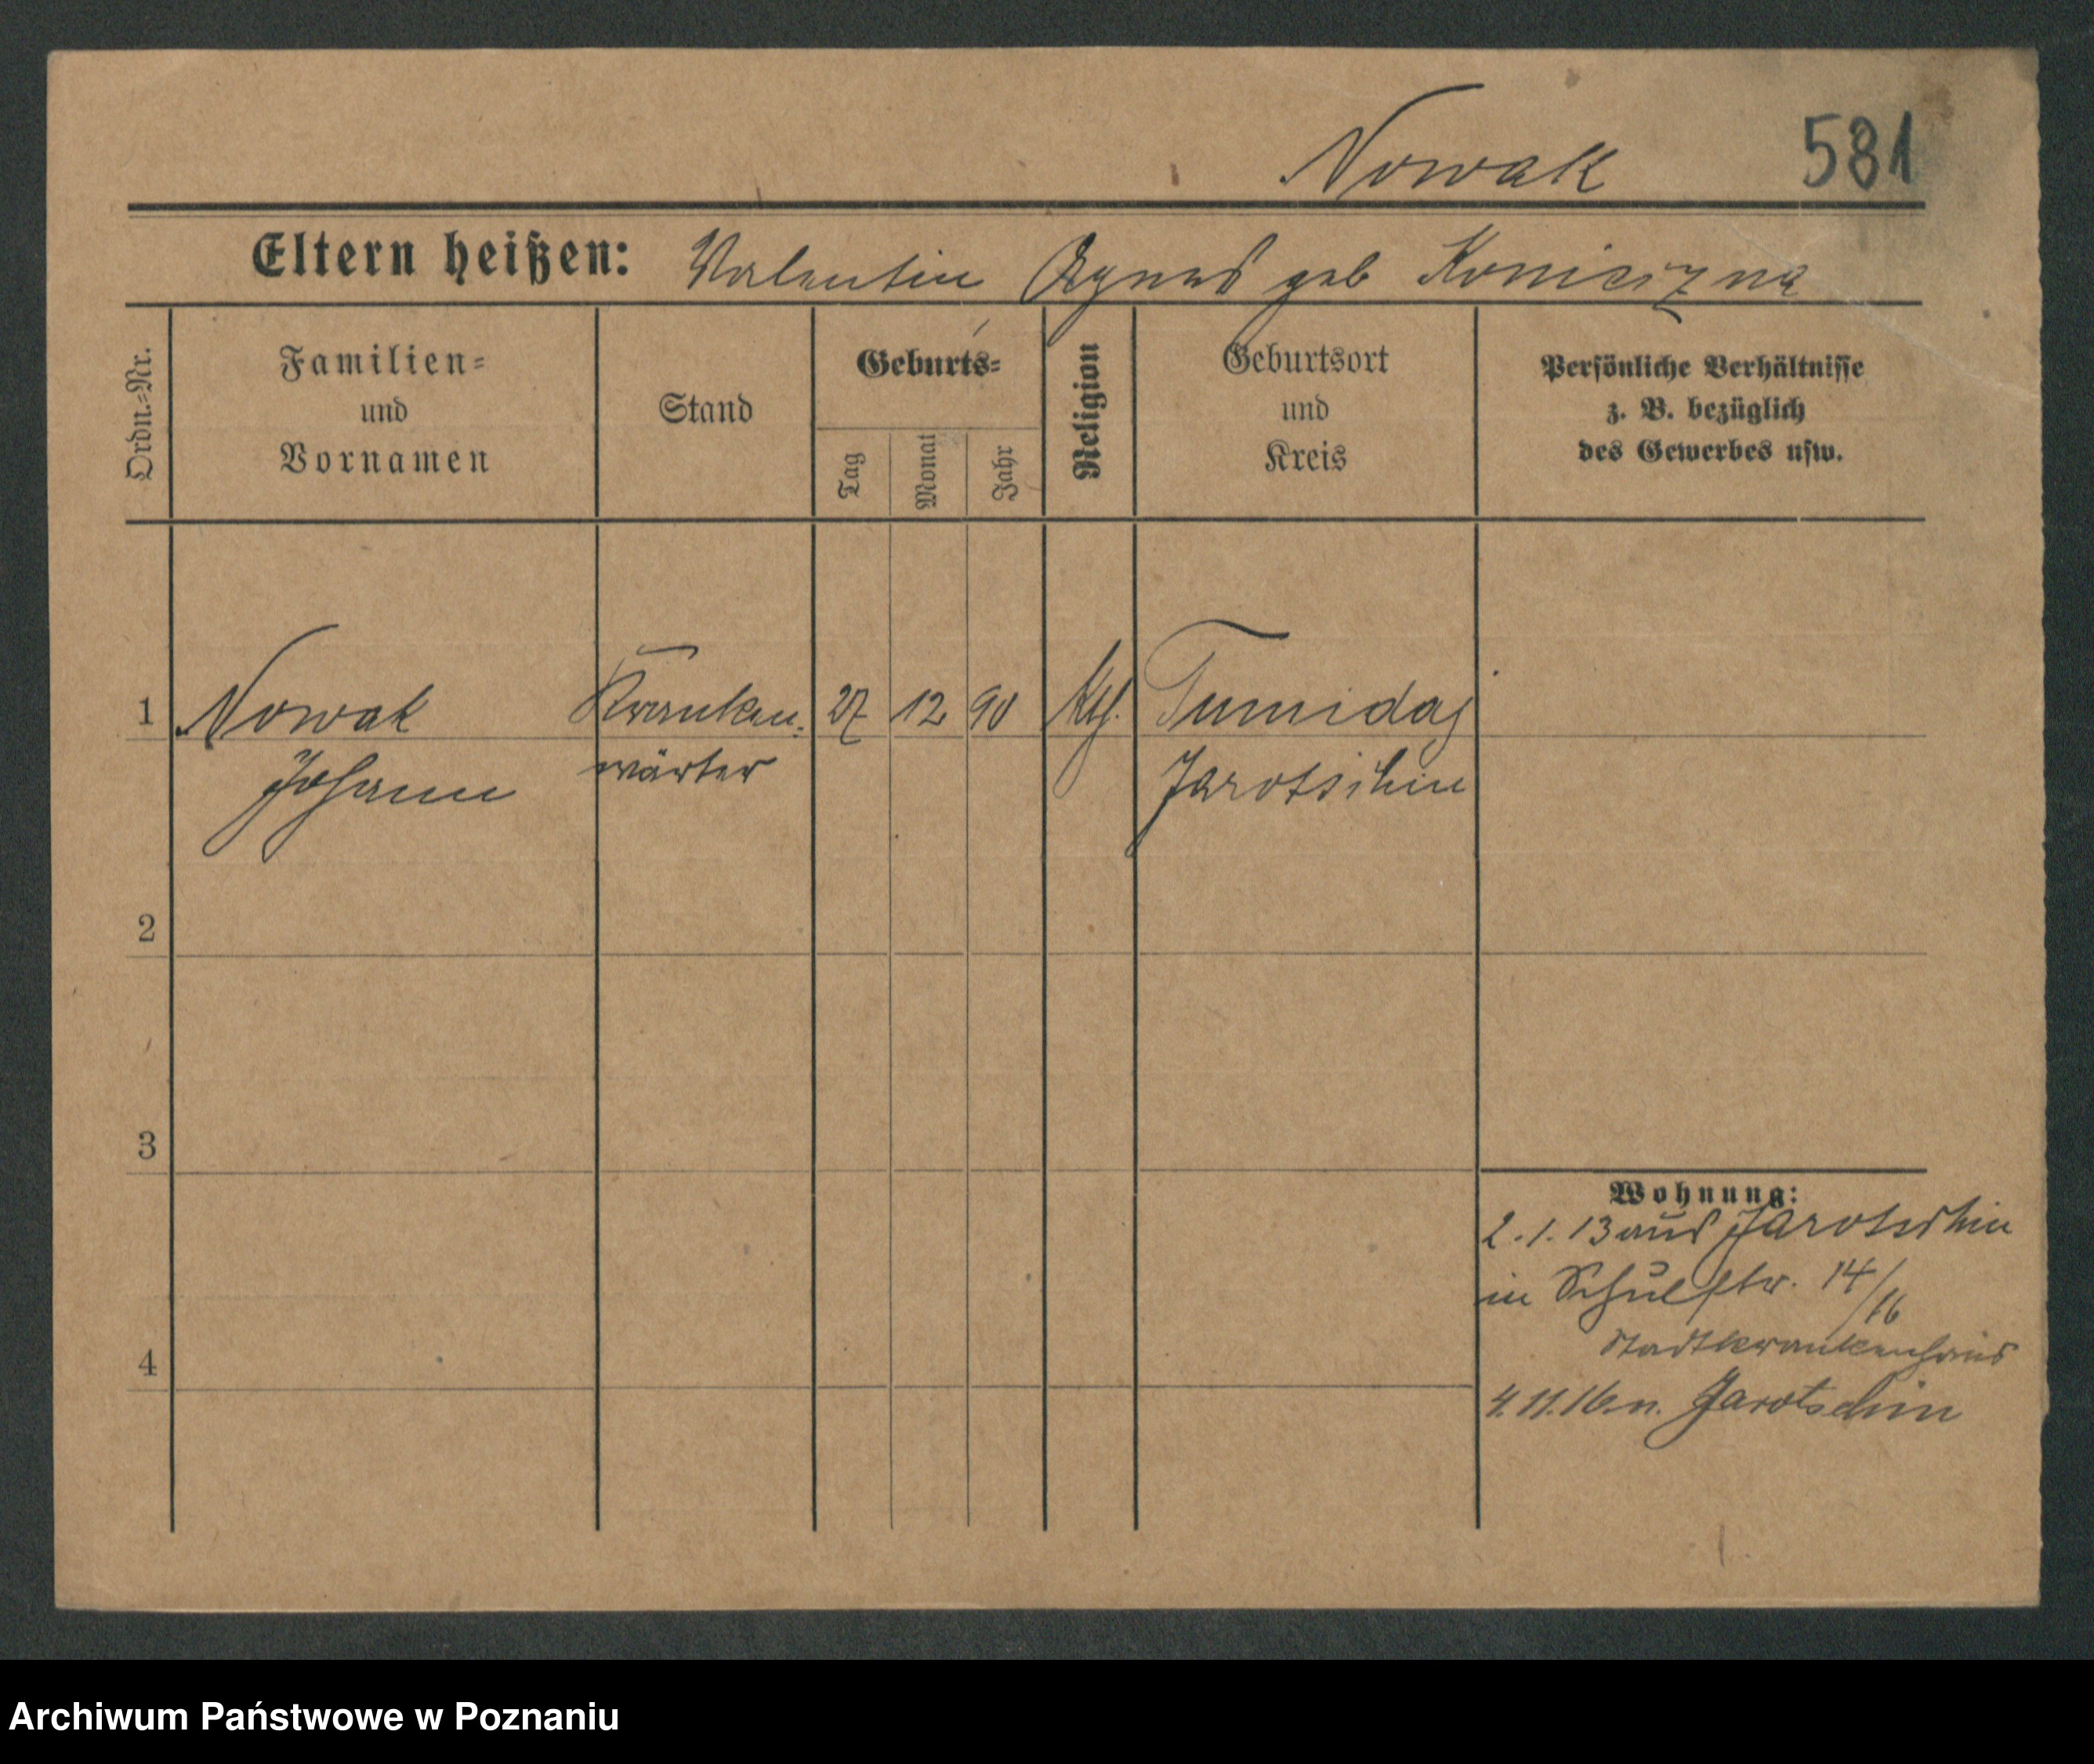 Nowak 581
Eltern heißen: Valentin Agnes geb
Ordn.-Nr.
Familien=
und
Vornamen
Stand
Geburts=
Tag
Monat
Jahr
Religion
Geburtsort
und
Kreis
Persönliche Verhältnisse
z. B. bezüglich
des Gewerbes usw.
1 Nowak Kranken- 27 12 90 kth. Tumidaj
Johann wärter Jarotschin
2
3
4
Wohnung:
2.1.13 aus Jarotschin
in Schulstr. 14/16
Stadtkrankenhaus
4.11.16 n. Jarotschin
Archiwum Państwowe w Poznaniu